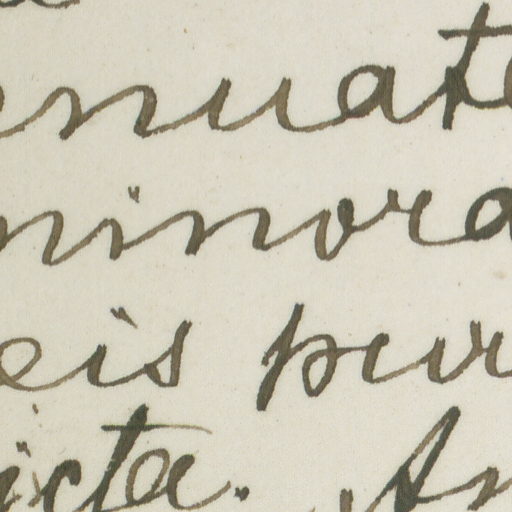 nuate
minora
eis pur
icta. An